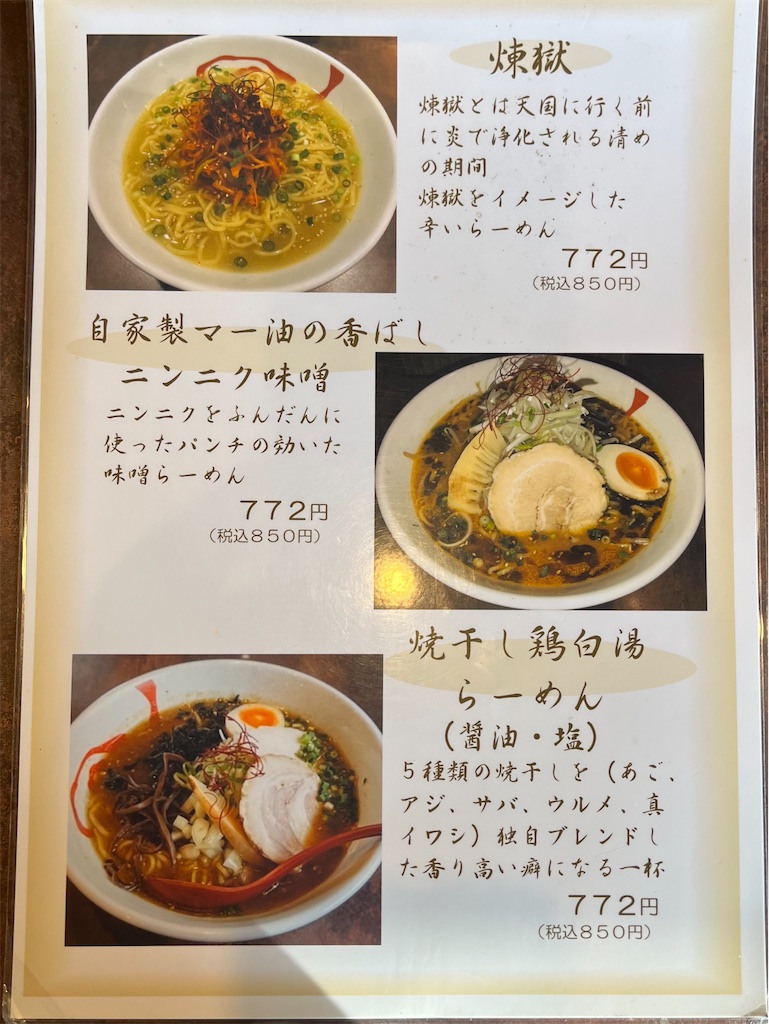 煉獄
煉獄とは天国に行く前
に炎で浄化される清め
の期間
煉獄をイメージした
辛いらーめん
772円
(税込850円)
自家製マー油の香ばし
ニンニク味噌
ニンニクをふんだんに
使ったパンチの効いた
味噌らーめん
772円
(税込850円)
焼干し鶏白湯
らーめん
(醤油・塩)
5種類の焼干しを(あご、
アジ、サバ、ウルメ、真
イワシ)独自ブレンドし
た香り高い癖になる一杯
772円
(税込850円)